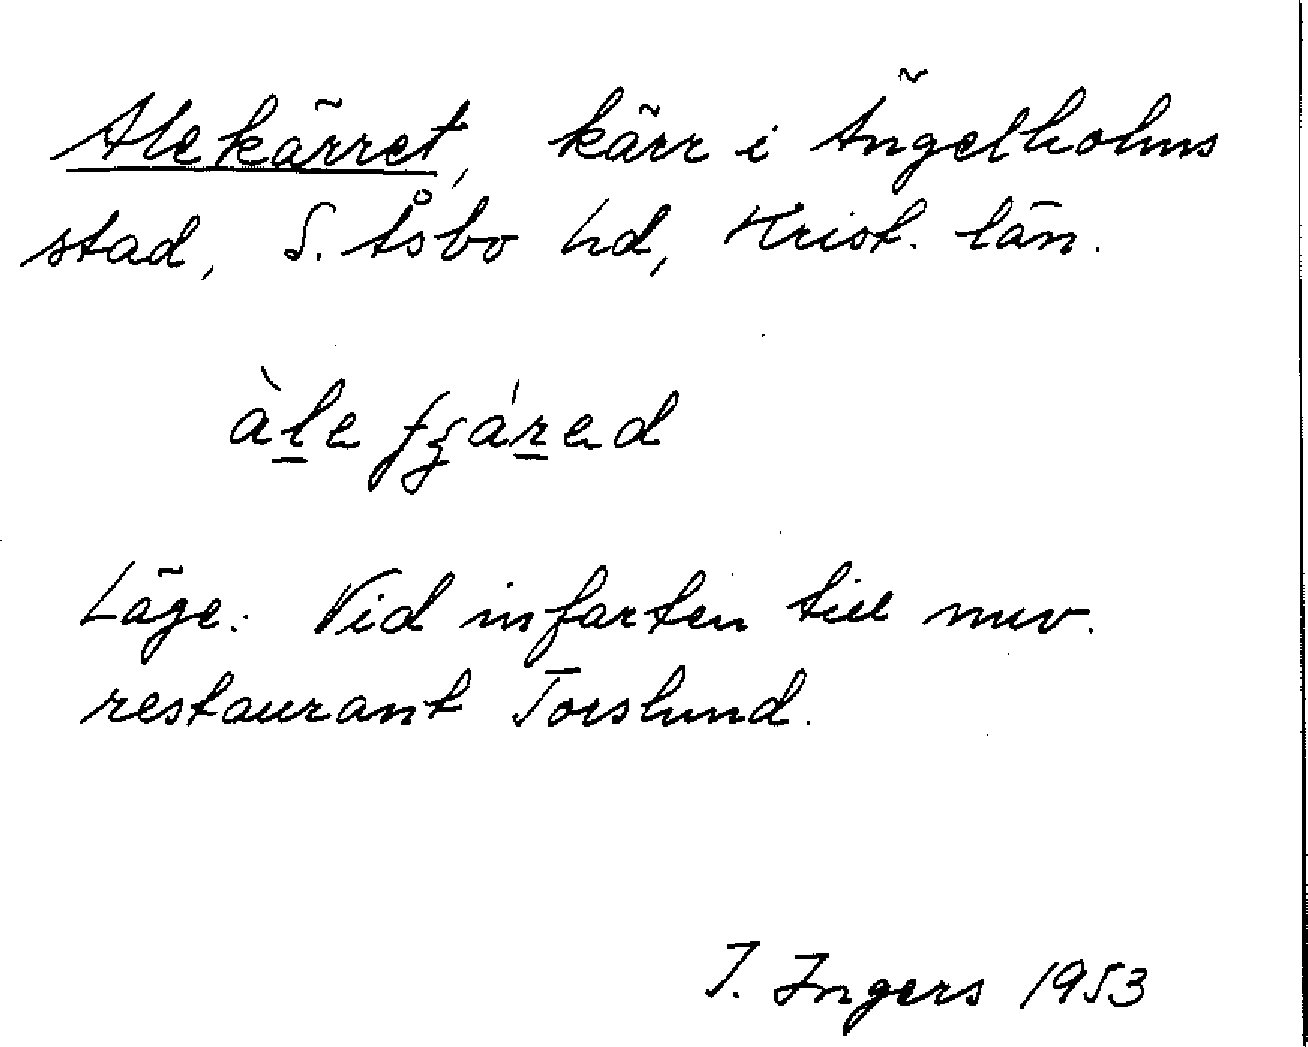 Alekärret, kärr i Ängelholms
stad, S. Åsbo hd, Krist. län.
àle
Läge: Vid infarten till nuv.
restaurant Torslund.
I. Ingers 1953